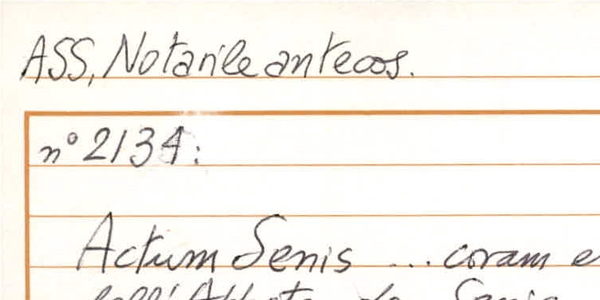 ASS, Notarile antecos.
n° 2134:
Actum Senis ... coram
de Senis